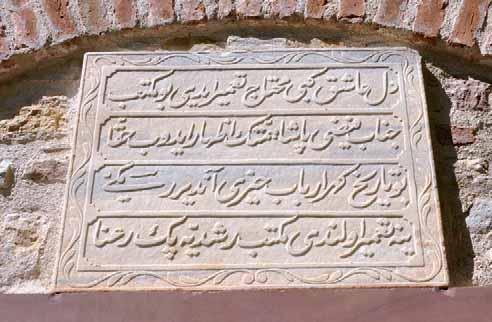 دل عاشق كبی محتاج تعمیر ایدی بو مكتب
جناب فیضی پاشا همتك اظهار ایدوب حقا
بو تاریخ كهر ارباب خیری آندیرر
ینه تعمیر اولندی مكتب رشدیه پك رعنا